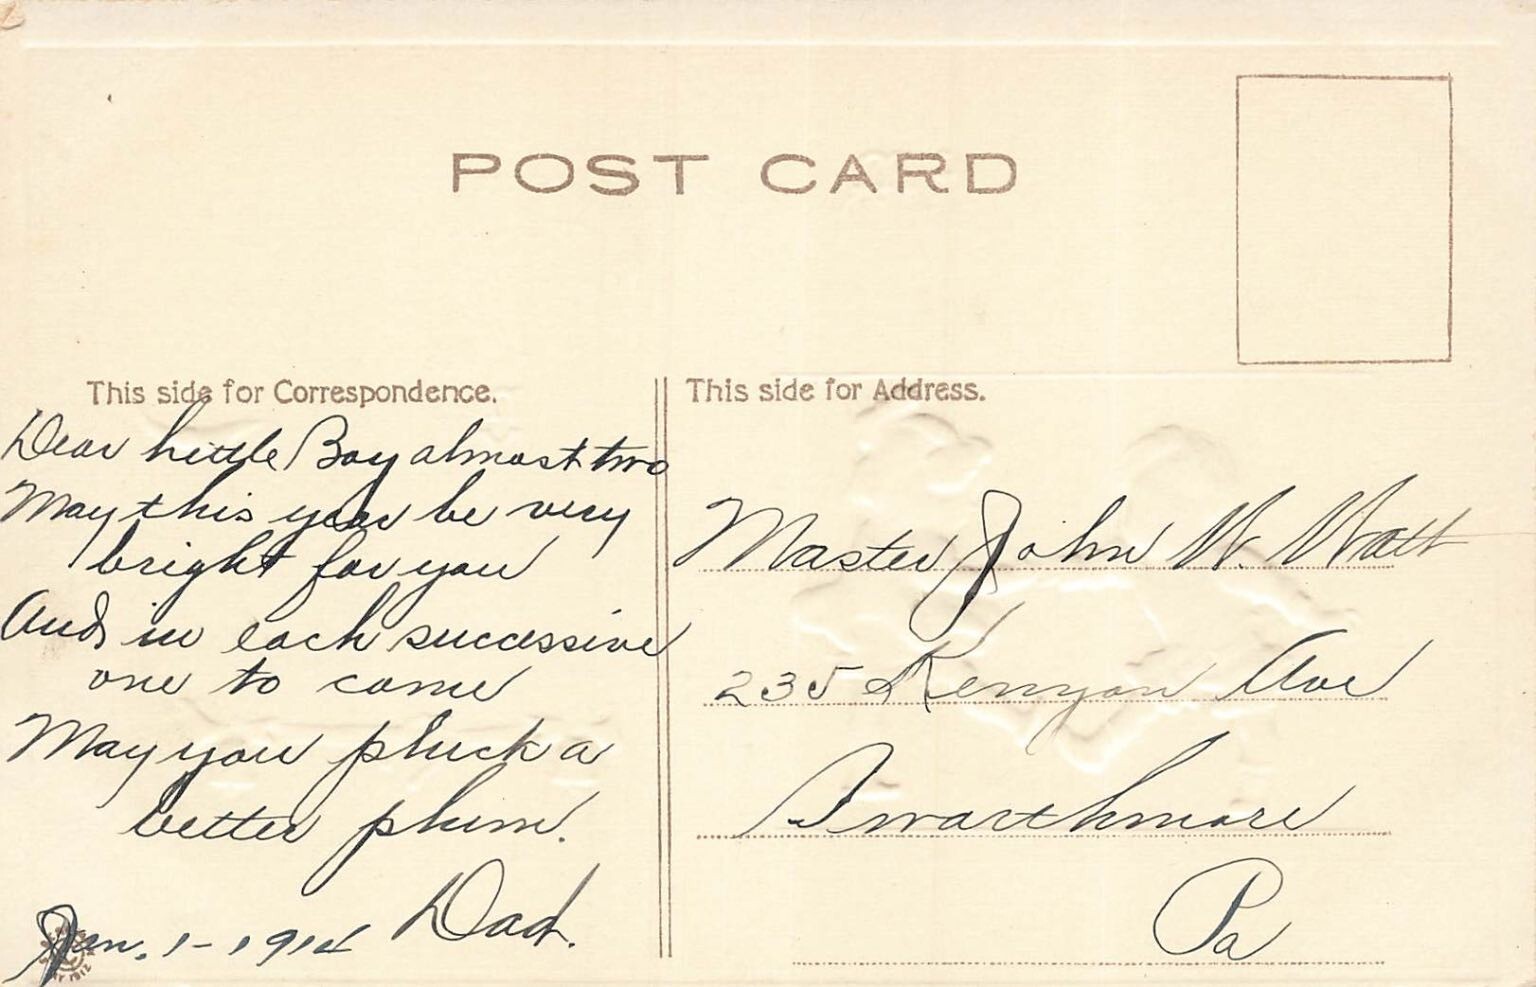 POST CARD
This side for Correspondence.
Dear little Boy almost two
May this year be very
bright for you
And in each successive
one to come
May you pluck a
better plum.
Dad.
Jan. 1-1914
This side for Address.
Master John W. Watt
235 Kenyon Ave
Swarthmore
Pa